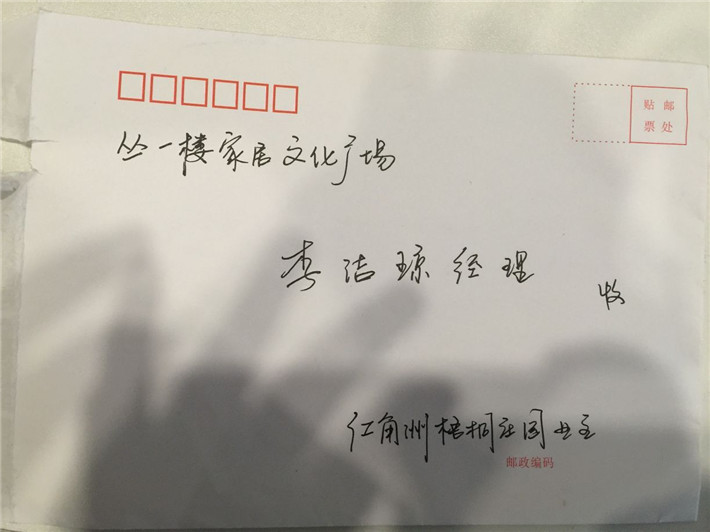 贴 邮
票 处
丛一楼家居文化广场
李洁琼经理
收
红角洲梧桐庄园业主
邮政编码